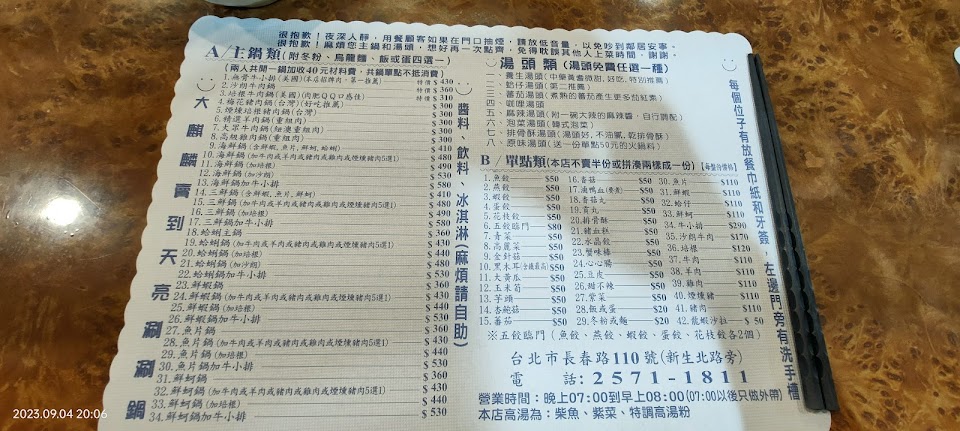 很抱歉！夜深人靜，用餐顧客如果在門口抽煙，請放低音量，以免吵到鄰居安寧。
很抱歉！麻煩您主鍋和湯頭，想好再一次點齊，免得耽誤其他人上菜時間，謝謝。
A/主鍋類(附冬粉、烏龍麵、飯或蛋四選一)
(兩人共開一鍋加收40元材料費，共鍋單點不抵消費)
大麒麟賣到天亮涮涮鍋
1.無骨牛小排(美國) 特價$430
2.沙朗牛肉鍋 特價$360
3.培根牛肉鍋(美國)(肉肥QQ口感佳) 特價$310
4.梅花豬肉鍋(台灣)(好吃推薦) $300
5.煙燻培根豬肉鍋(台灣) $300
6.精選羊肉鍋(重組肉) $300
7.大眾牛肉鍋(紐澳重組肉) $300
8.高級雞肉鍋(重組肉) $300
9.海鮮鍋(含鮮蝦,魚片,鮮蚵,蛤蜊) $410
10.海鮮鍋(加牛肉或羊肉或豬肉或雞肉或煙燻豬肉5選1) $480
11.海鮮鍋(加培根) $490
12.海鮮鍋(加沙朗) $530
13.海鮮鍋加牛小排 $580
14.三鮮鍋(含鮮蝦,魚片,鮮蚵) $410
15.三鮮鍋(加牛肉或羊肉或豬肉或雞肉或煙燻豬肉5選1) $480
16.三鮮鍋(加培根) $490
17.三鮮鍋加牛小排 $580
18.蛤蜊主鍋 $380
19.蛤蜊鍋(加牛肉或羊肉或豬肉或雞肉或煙燻豬肉5選1) $430
20.蛤蜊鍋(加培根) $440
21.蛤蜊鍋(加沙朗) $480
22.蛤蜊鍋加牛小排 $530
23.鮮蝦鍋 $360
24.鮮蝦鍋(加牛肉或羊肉或豬肉或雞肉或煙燻豬肉5選1) $430
25.鮮蝦鍋(加培根) $440
26.鮮蝦鍋加牛小排 $530
27.魚片鍋 $360
28.魚片鍋(加牛肉或羊肉或豬肉或雞肉或煙燻豬肉5選1) $430
29.魚片鍋(加培根) $440
30.魚片鍋加牛小排 $530
31.鮮蚵鍋 $360
32.鮮蚵鍋(加牛肉或羊肉或豬肉或雞肉或煙燻豬肉5選1) $430
33.鮮蚵鍋(加培根) $440
34.鮮蚵鍋加牛小排 $530
醬料、飲料、冰淇淋(麻煩請自助)
湯頭類(湯頭免費任選一種)
一、養生湯頭(中藥黃耆微甜，好吃，特別推薦)
二、蛤仔湯頭(第二推薦)
三、蕃茄湯頭(煮熟的蕃茄產生更多茄紅素)
四、咖哩湯頭
五、麻辣湯頭(附一碗大辣的麻辣醬，自行調配)
六、泡菜湯頭(韓式泡菜)
七、排骨酥湯頭(湯頭好，不油膩，乾排骨酥)
八、原味湯頭(送一份單點50元的火鍋料)
B/單點類(本店不賣半份或拼湊兩樣成一份)【每盤份價格】
1.魚餃 $50 16.香菇 $50 30.魚片 $110
2.燕餃 $50 17.滷鴨血 $50 31.鮮蝦 $110
3.蝦餃 $50 18.香菇丸 $50 32.蛤仔 $110
4.蛋餃 $50 19.貢丸 $50 33.鮮蚵 $110
5.花枝餃 $50 20.排骨酥 $50 34.牛小排 $290
6.五餃臨門 $80 21.豬血糕 $50 35.沙朗牛肉 $170
7.青菜 $50 22.水晶餃 $50 36.培根 $120
8.高麗菜 $50 23.蟹味棒 $50 37.牛肉 $110
9.金針菇 $50 24.心心腸 $50 38.羊肉 $110
10.黑木耳 $50 25.豆皮 $50 39.雞肉 $110
11.大黃瓜 $50 26.甜不辣 $50 40.煙燻豬 $110
12.玉米筍 $50 27.紫菜 $50 41.豬肉 $110
13.芋頭 $50 28.飯或蛋 $20 42.龍蝦沙拉 $50
14.杏鮑菇 $50 29.冬粉或麵 $20
15.蕃茄 $50
※五餃臨門(魚餃、燕餃、蝦餃、蛋餃、花枝餃各2個)
台北市長春路110號(新生北路旁)
電話:2571-1811
營業時間：晚上07:00到早上08:00(07:00以後只做外帶)
本店高湯為：柴魚、紫菜、特調高湯粉
每個位子有放餐巾紙和牙籤，左邊門旁有洗手檯
2023.09.04 20:06